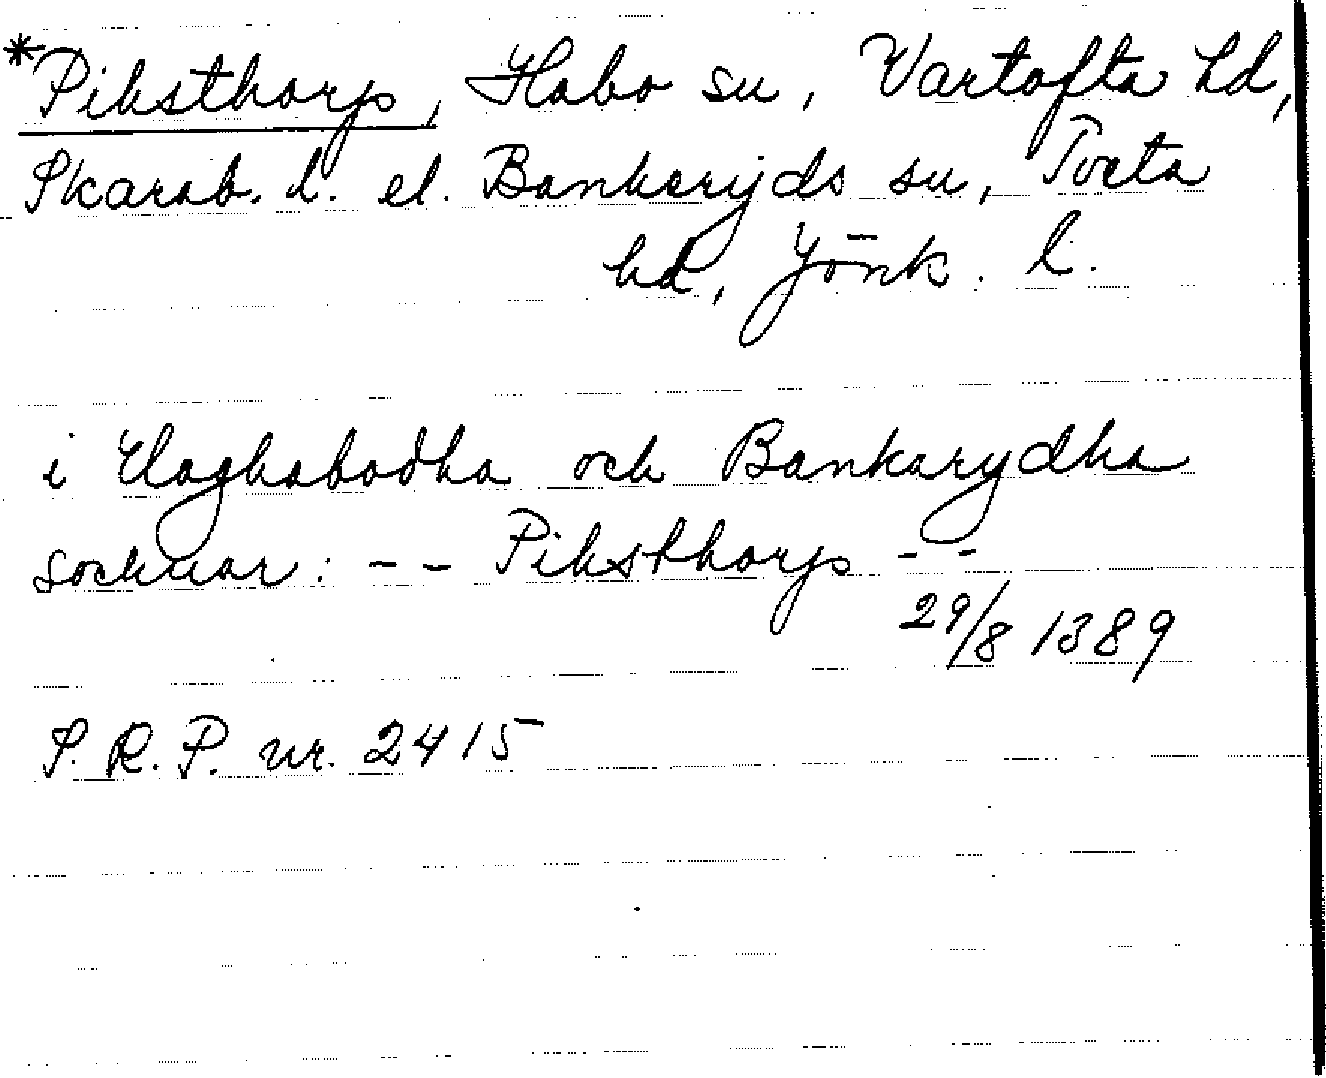 *Piksthorp, Habo sn, Vartofta hd,
Skarab. l. el. Bankeryds sn, Tveta
hd, Jönk. l.
i Haghabodha och Bankarydha
soknar: -- Piksthorp --
29/8 1389
S.R.P. nr. 2415